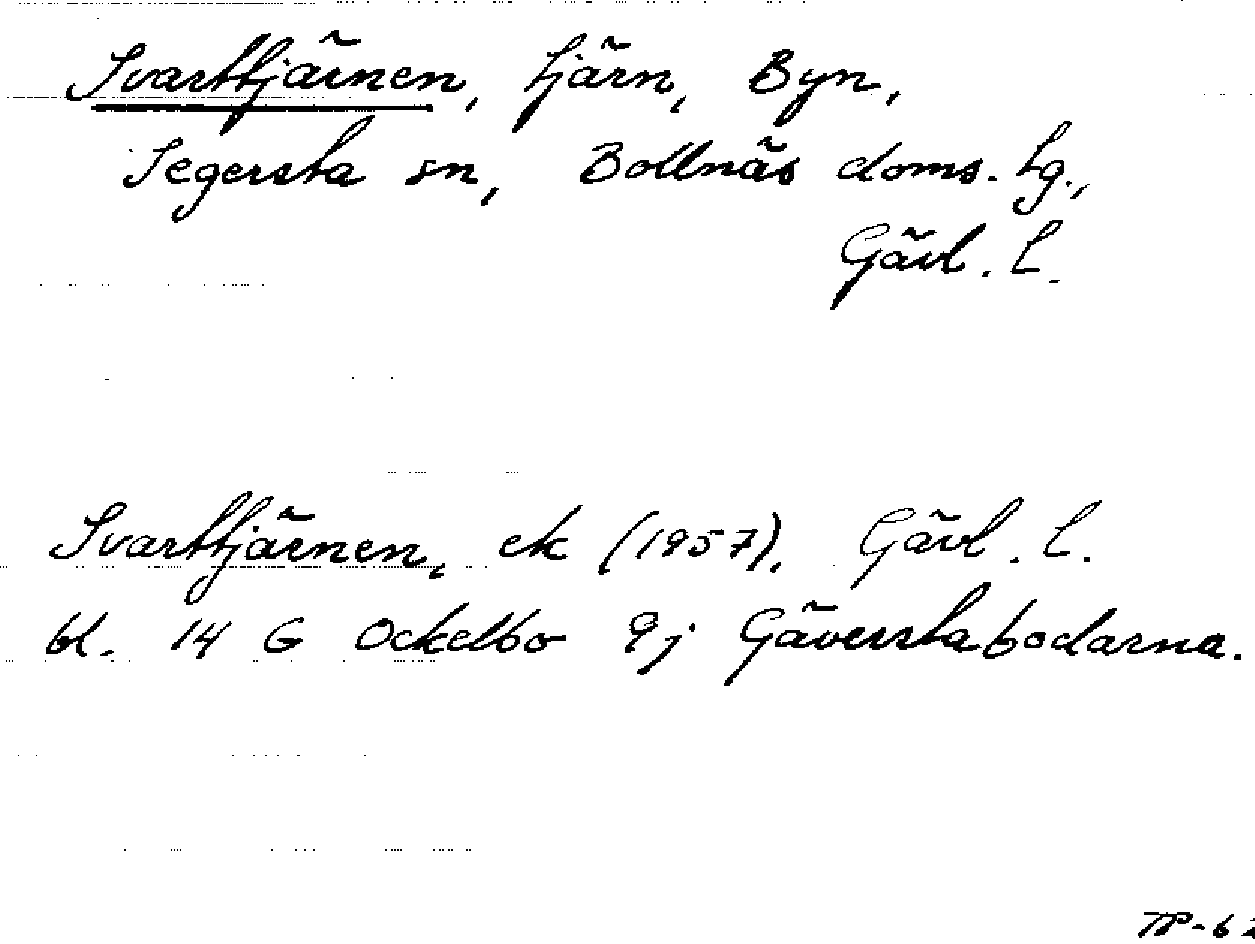 Svarttjärnen, tjärn, Byn,
Segersta sn, Bollnäs doms. tg.,
Gävl. L.
Svarttjärnen, ek (1957), Gävl. L.
bl. 14 G Ockelbo 9j Gäverstabodarna.
TP-62